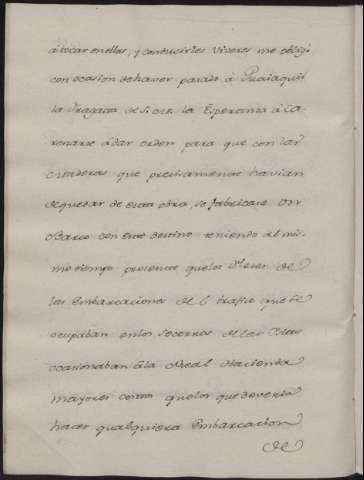 á tocar en ellas, y conducirles Viveres me obligó
con ocasion de haver pasado á Guaiaquil
la Fragata de S. M. la Esperanza á Ca-
renarse á dar orden para que con las
Maderas que precisamente havian
de quedar de esta obra, se fabricase un
Barco con este destino teniendo al mis-
mo tiempo presente que los fletes de
las Embarcaciones del trafico que se
ocupaban en los Socorros de las Islas
ocasionaban á la Real Hacienda
mayores costos que los que deveria
hacer qualquiera Embarcacion
de